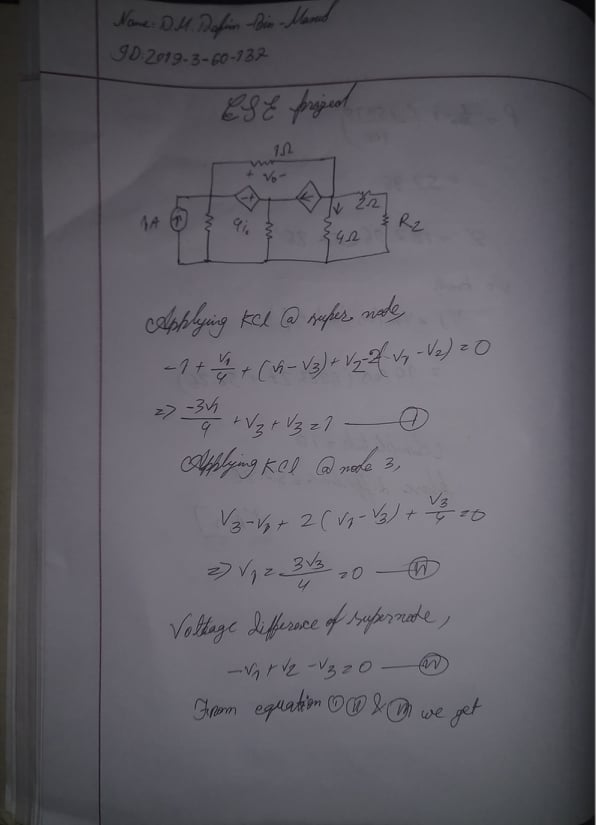 Name: D.M. Dafin-Bin-Masud
ID: 2019-3-60-137
ESE project
1Ω
+ V₀ -
1A
4i₀
2Ω
4Ω
R₂
Applying KCl @ super node,
-1 + V₁/4 + (V₁ - V₃) + V₂ - 2(V₁ - V₂) = 0
=> -3V₁/4 + V₃ + V₃ = 1 — ①
Applying KCl @ node 3,
V₃ - V₁ + 2(V₁ - V₃) + V₃/4 = 0
=> V₁ = 3V₃/4 = 0 — ⑪
Voltage difference of supernode,
-V₁ + V₂ - V₃ = 0 — ⑪
From equation ① ⑪ & ⑪ we get